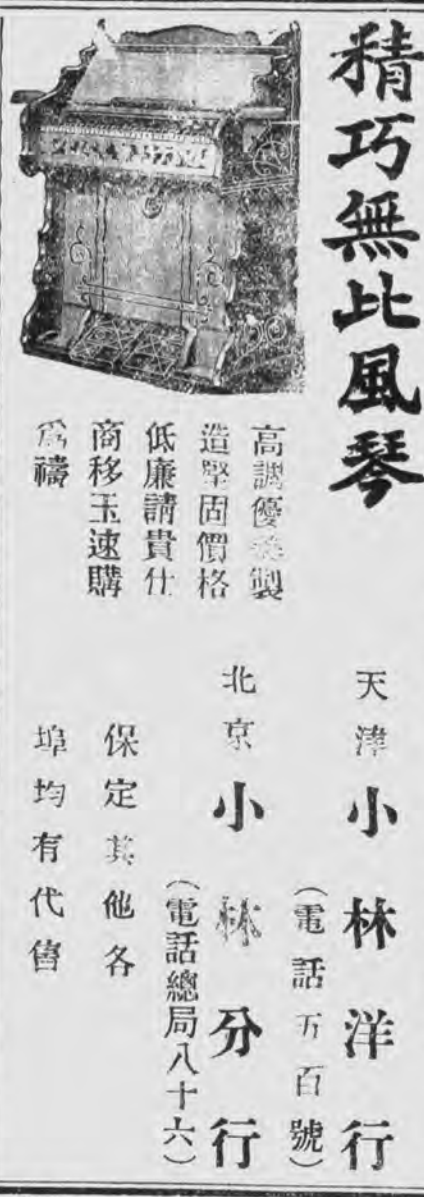 精巧無比風琴
高調優美製
造堅固價格
低廉請貴仕
商移玉速購
爲禱
天津小林洋行
（電話五百號）
北京小林分行
（電話總局八十六）
保定其他各
埠均有代售